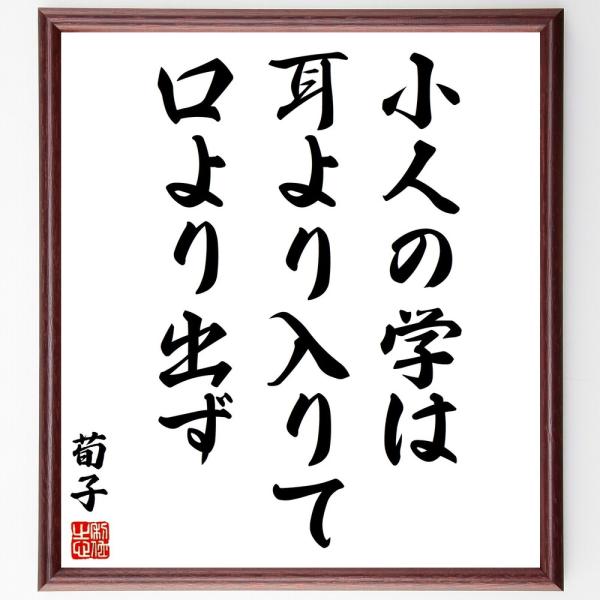 小人の学は
耳より入りて
口より出ず
荀子